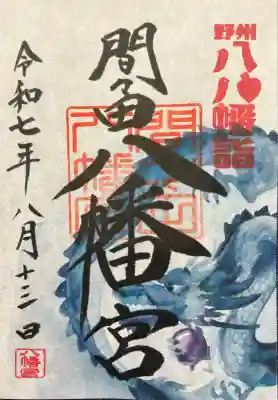 野州
八八幡詣
間々田八幡宮
令和七年 八月十三日